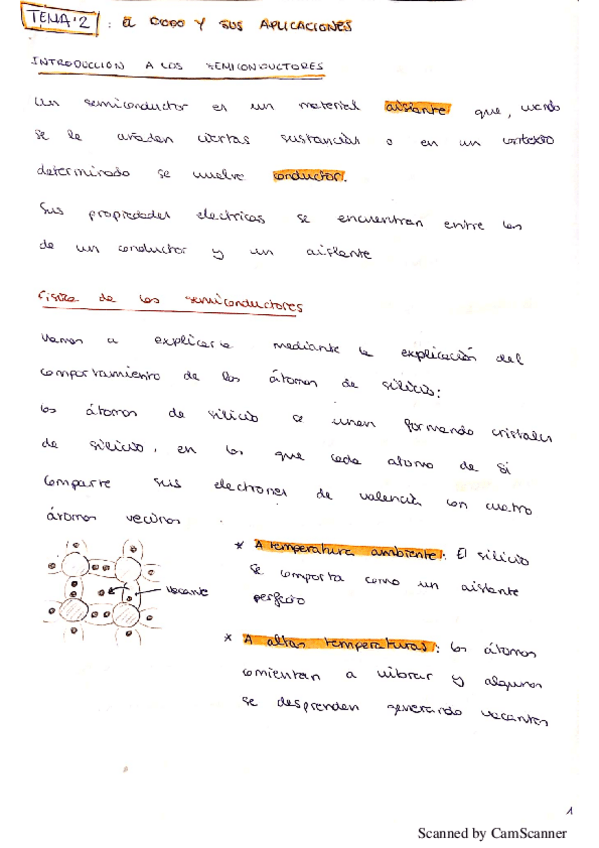 TEMA 2 : El DIODO Y SUS APLICACIONES
INTRODUCCIÓN A LOS SEMICONDUCTORES
Un semiconductor es un material aislante que, cuando
se le añaden ciertas sustancias o en un contexto
determinado se vuelve conductor.
Sus propiedades electricas se encuentran entre las
de un conductor y un aislante
Física de los semiconductores
Vamos a explicarla mediante la explicación del
comportamiento de los átomos de silicio:
los átomos de silicio se unen formando cristales
de silicio, en los que cada atomo de si
comparte sus electrones de valencia con cuatro
átomos vecinos
* A temperatura ambiente: El silicio
se comporta como un aislante
perfecto
vacante
* A altas temperaturas: los átomos
comienzan a vibrar y algunos
se desprenden generando vacantes
1
Scanned by CamScanner